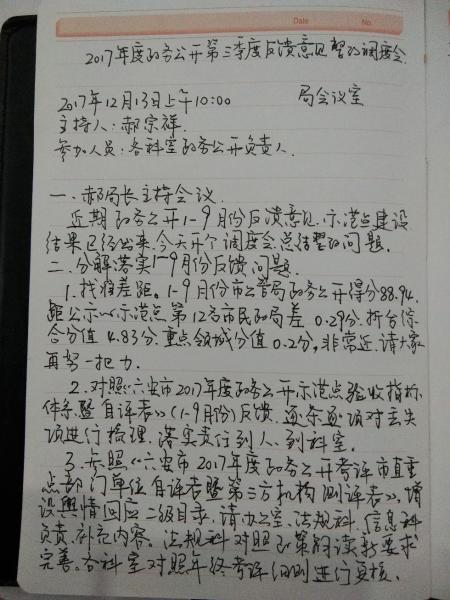 Date No.
2017年度政务公开第三季度反馈意见整改调度会
2017年12月13日上午10:00 局会议室
主持人:郝宗祥.
参加人员:各科室政务公开负责人.
一.郝局长主持会议.
近期政务公开1-9月份反馈意见.示范点建设
结果已经出来,今天开个调度会.总结整改问题.
二.分解落实1-9月份反馈问题.
1.找准差距。1-9月份市公管局政务公开得分88.94,
距公示示范点第12名市民政局差0.29分.折合综
合分值4.83分.重点领域分值0.2分,非常近.请大家
再努一把力.
2.对照《六安市2017年度政务公开示范点验收指标
体系暨自评表》(1-9月份)反馈.逐条逐项对丢失
项进行梳理.落实责任到人.到科室.
3.参照《六安市2017年度政务公开考评市直重
点部门单位自评表暨第三方机构测评表》,增
设舆情回应二级目录.请办公室、法规科.信息科
负责.补充内容。法规科对照政策解读新要求
完善。各科室对照年终考评细则进行复核.